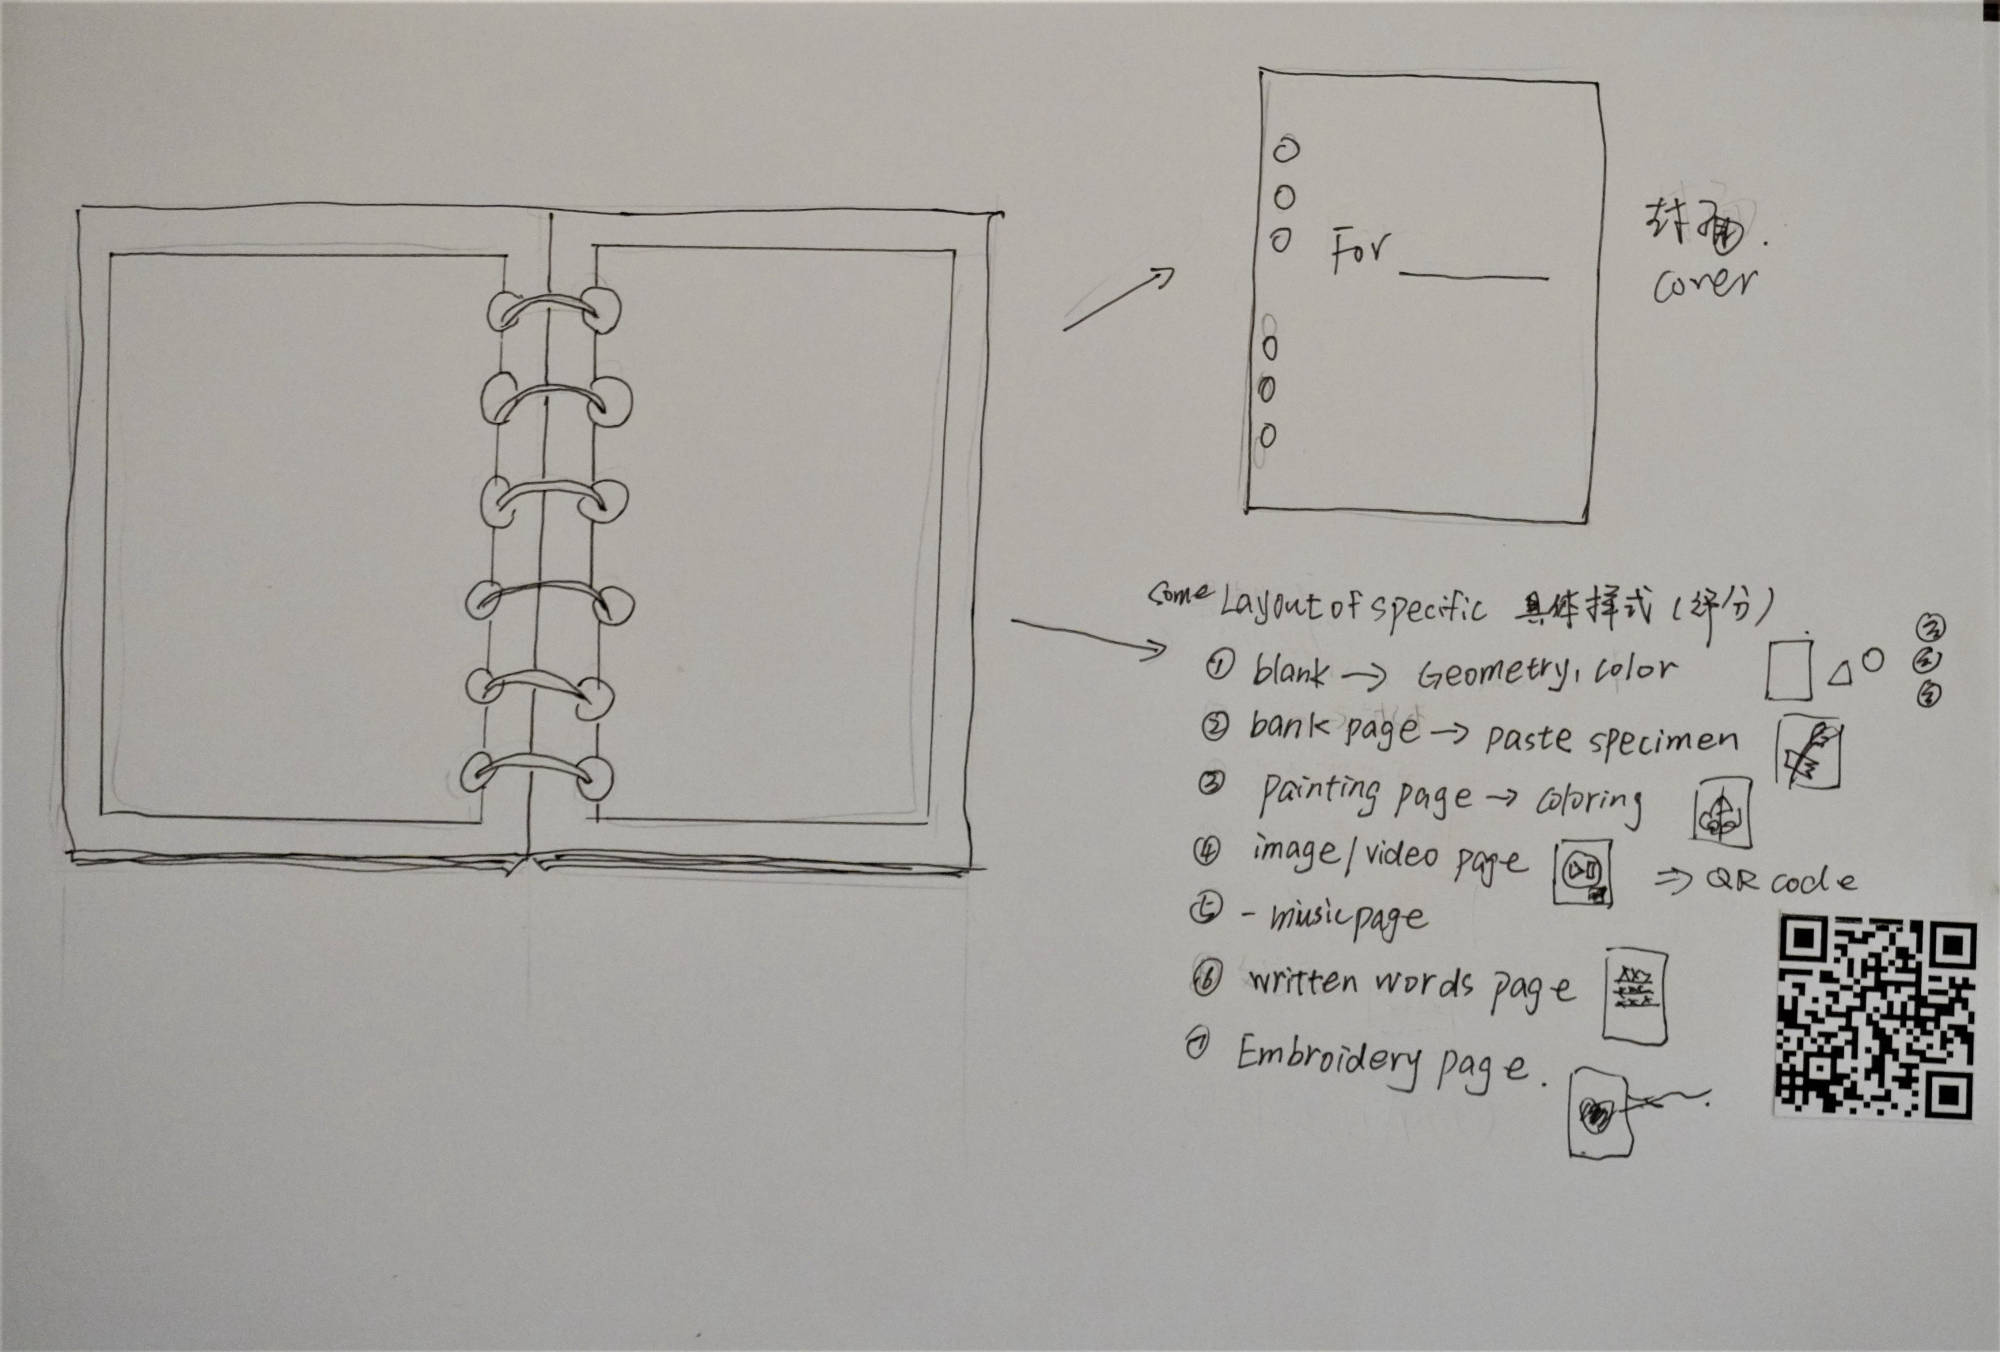 For
封面.
cover
Some Layout of specific 具体样式(评分)
① blank → Geometry, color
② bank page → paste specimen
③ painting page → coloring
④ image/video page ⇒ QR code
⑤ - music page
⑥ written words page
⑦ Embroidery page.